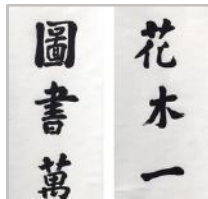 花木一
圖書萬